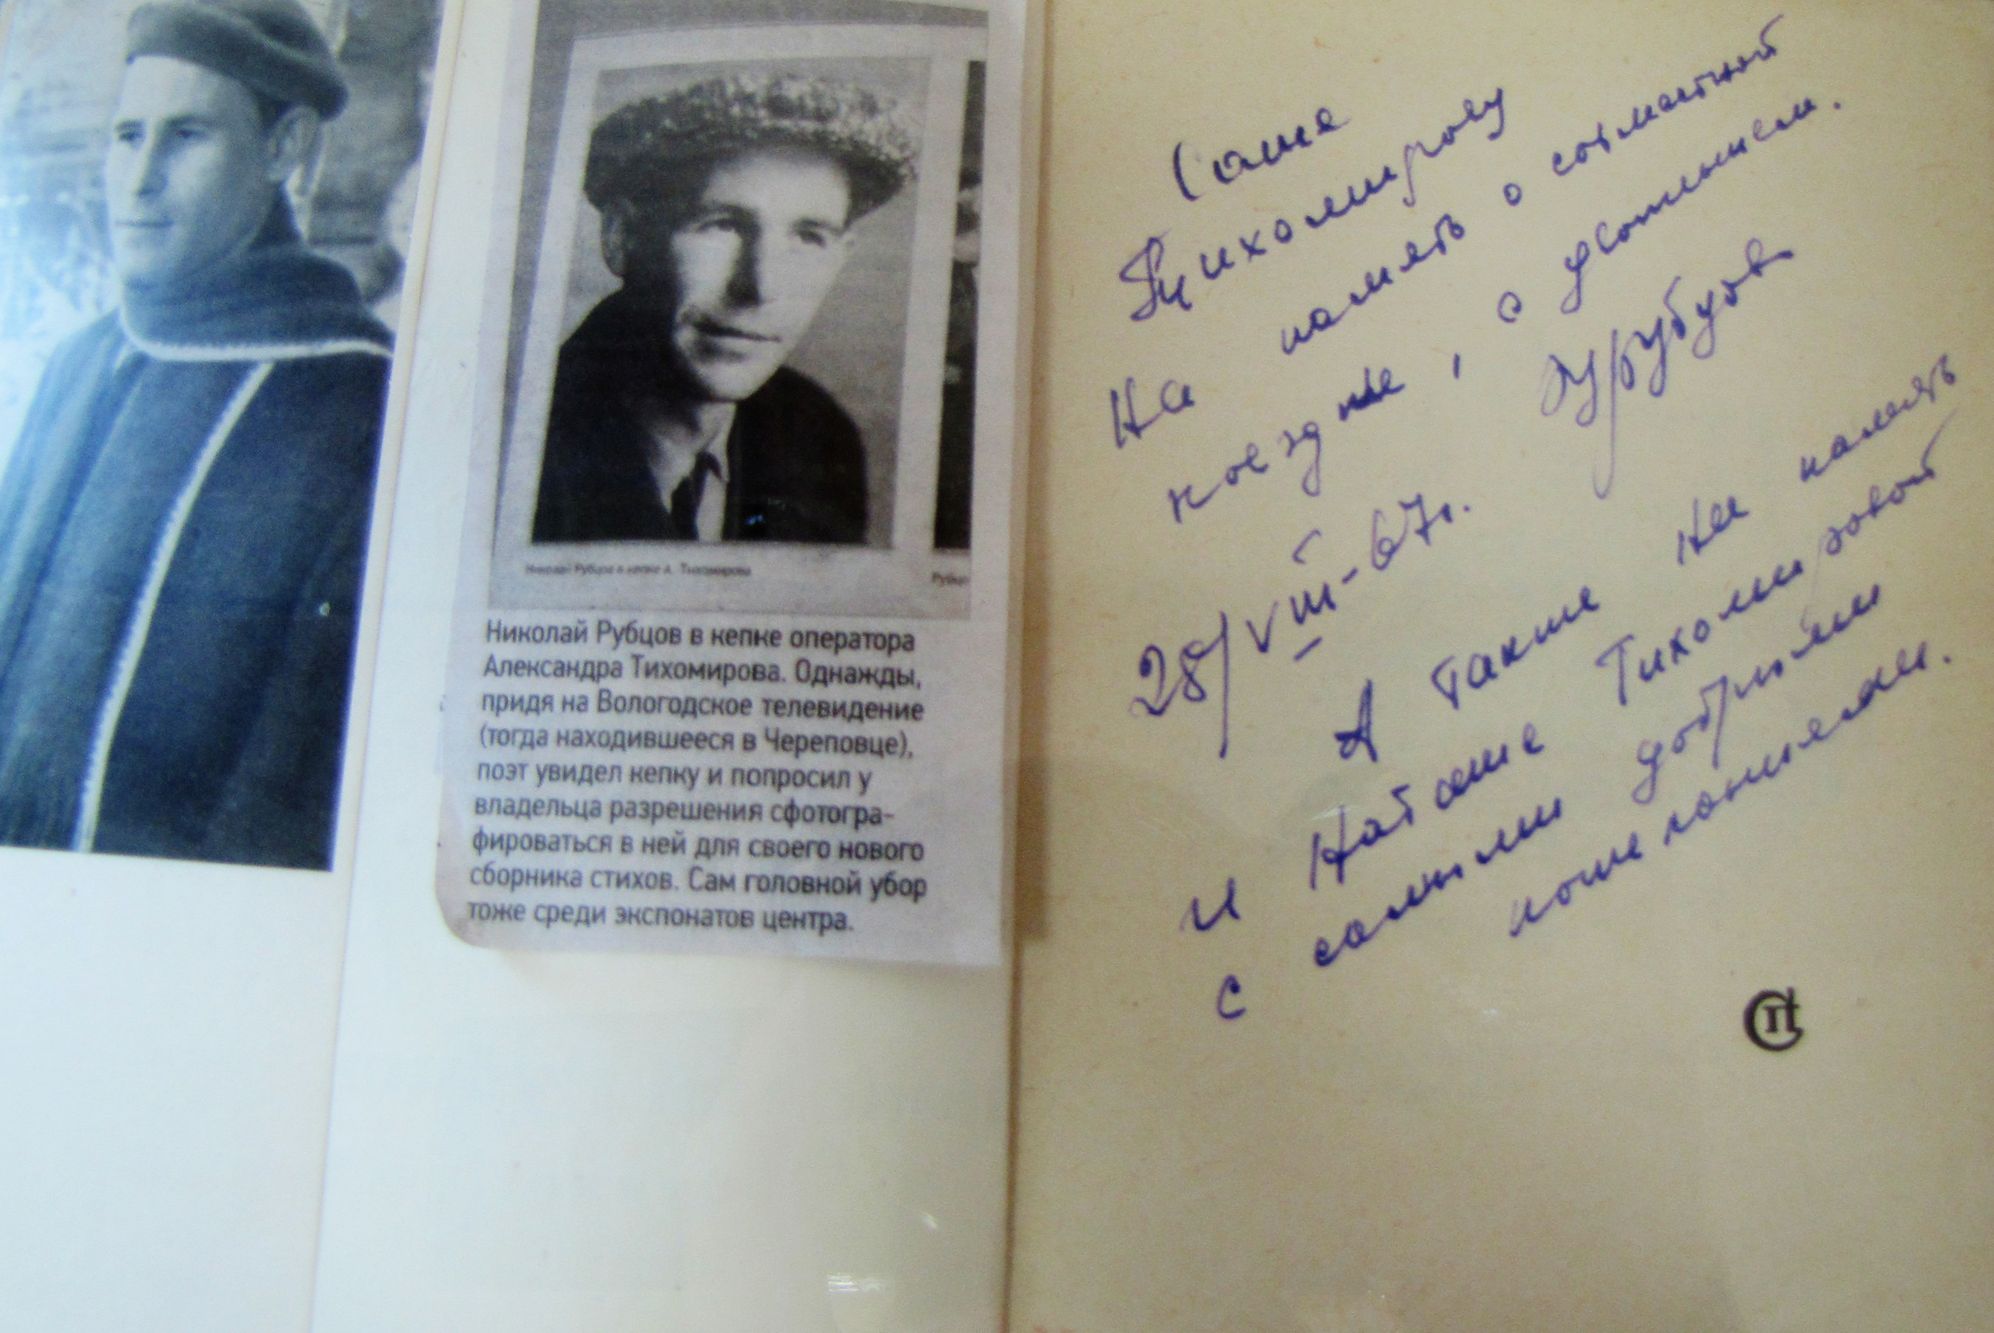 Николай Рубцов в кепке А. Тихомирова
Николай Рубцов в кепке оператора
Александра Тихомирова. Однажды,
придя на Вологодское телевидение
(тогда находившееся в Череповце),
поэт увидел кепку и попросил у
владельца разрешения сфотогра-
фироваться в ней для своего нового
сборника стихов. Сам головной убор
тоже среди экспонатов центра.
Саше
Тихомирову
На память о совместной
поездке, с
Н Рубцов
28/VIII-67г.
А также на память
и Наташе Тихомировой
с самыми добрыми
пожеланиями.